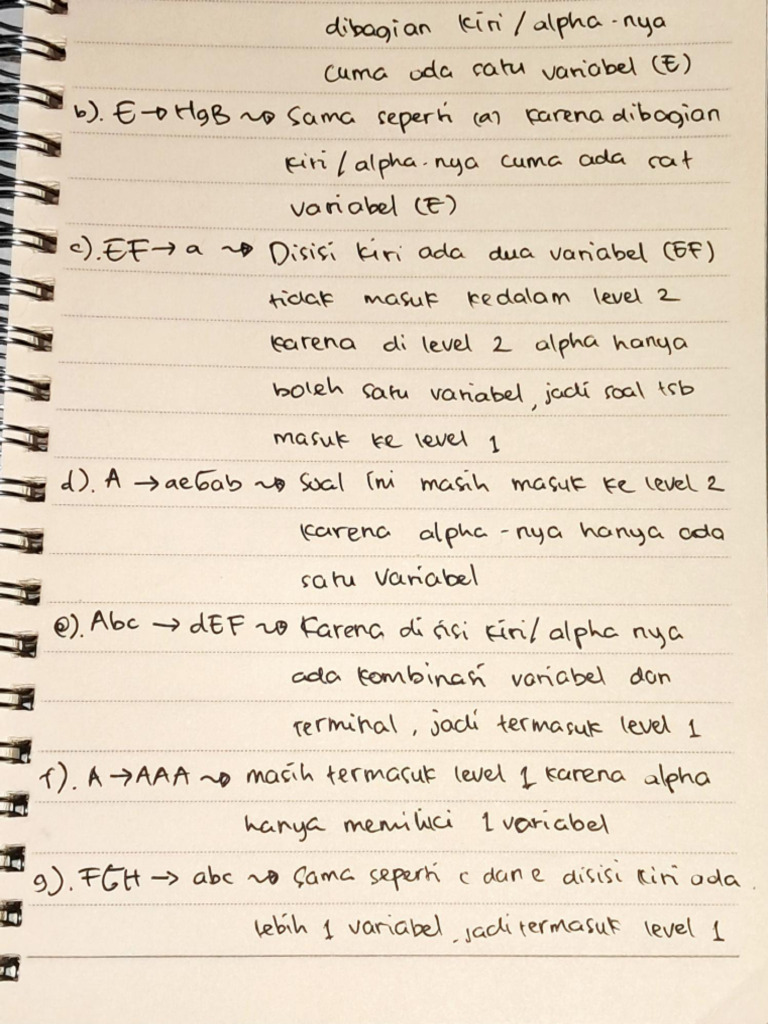 dibagian kiri / alpha-nya
cuma ada satu variabel (E)
b). E → HgB ~> Sama seperti (a) karena dibagian
kiri / alpha-nya cuma ada sat
variabel (E)
c). EF → a ~> Disisi kiri ada dua variabel (EF)
tidak masuk kedalam level 2
karena di level 2 alpha hanya
boleh satu variabel, jadi soal tsb
masuk ke level 1
d). A → aeGab ~> Soal ini masih masuk ke level 2
karena alpha-nya hanya ada
satu variabel
e). Abc → dEF ~> Karena di sisi kiri/ alpha nya
ada kombinasi variabel dan
terminal, jadi termasuk level 1
f). A → AAA ~> masih termasuk level 1 karena alpha
hanya memiliki 1 variabel
g). FGH → abc ~> Sama seperti c dan e disisi kiri ada
lebih 1 variabel, jadi termasuk level 1